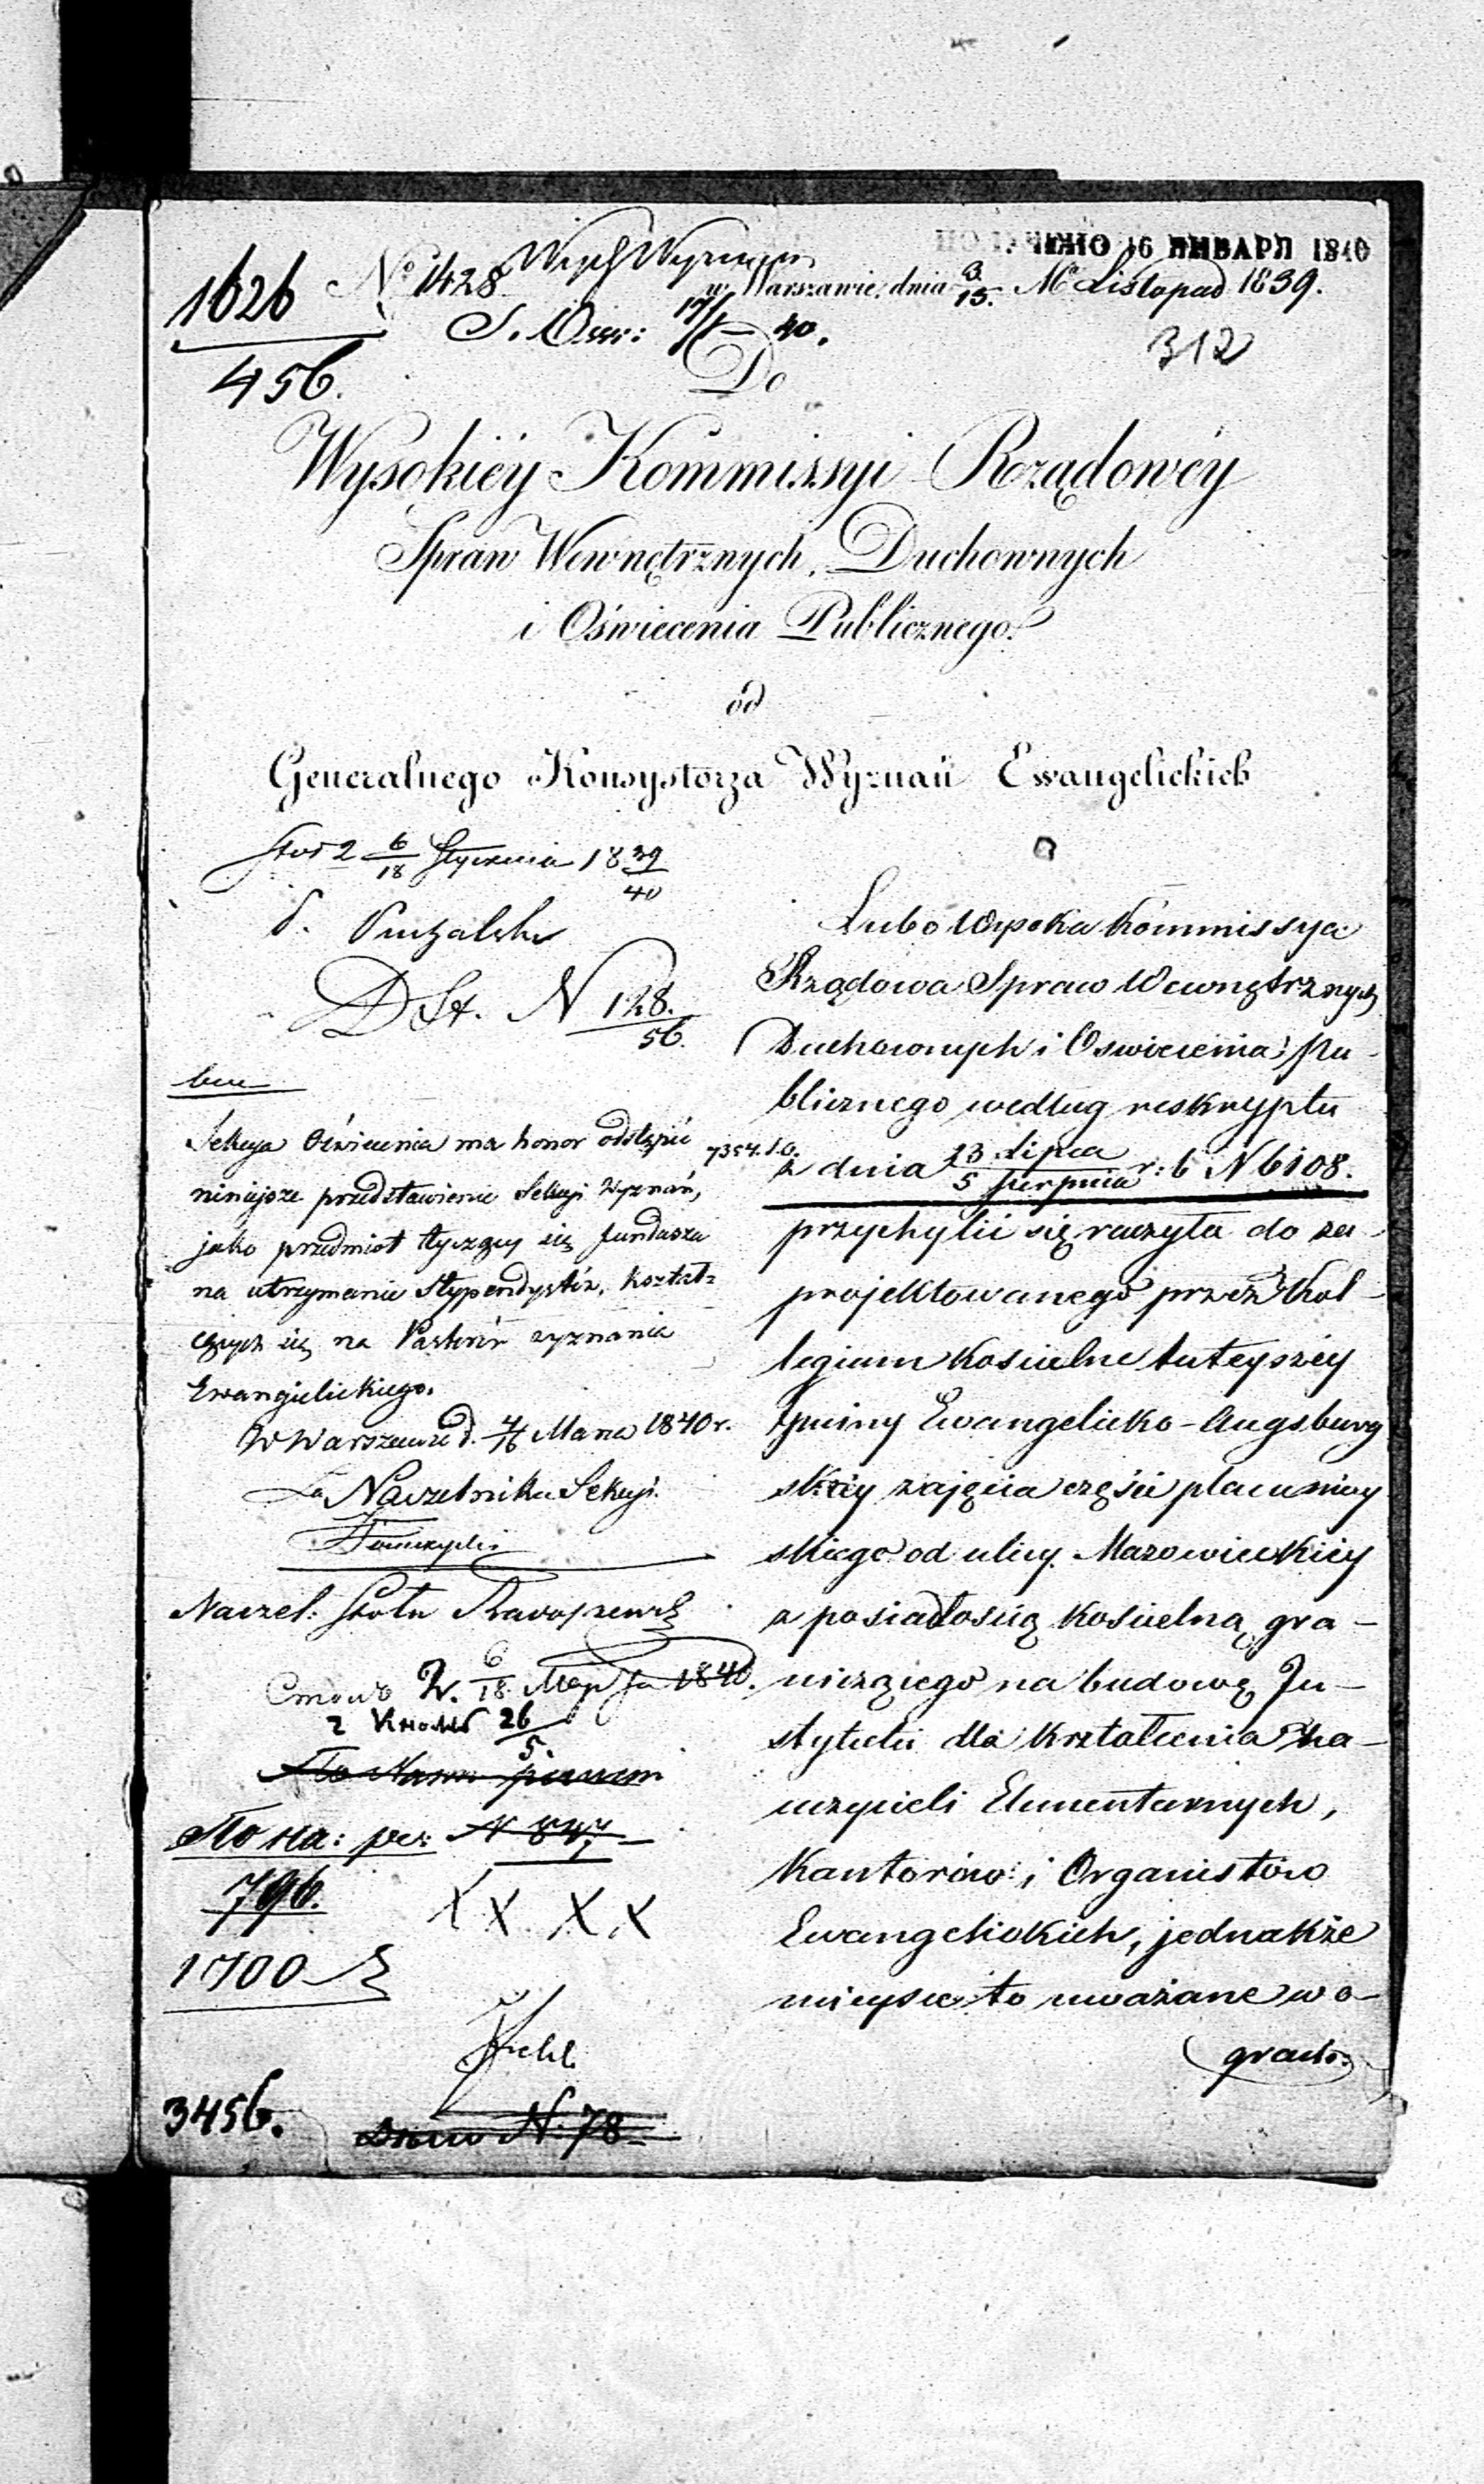 ПОЛУЧЕНО 16 ЯНВАРЯ 1840
1626
456.
№ 1428
w Warszawie, dnia 3/15. Mca Listopad 1839.
312
Do
Wysokiéy Kommissyi Rządowéy
Spraw Wewnętrznych, Duchownych
i Oświecenia Publicznego.
od
Generalnego Konsystorza Wyznań Ewangelickich
6/18 Stycznia 18 39/40
D St. N 128.
56.
Sekcya Oświecenia ma honor odstąpić
niniejsze przedstawienie Sekcyi Wyznań,
jako przedmiot tyczący się funduszu
na utrzymanie Stypendystów, kształ-
cących się na Pastorów wyznania
Ewangielickiego.
W Warszawie d. 4/16 Marca 1840 r.
Za Naczelnika Sekcyi
Naczel: Stołu
2. 6/18 Марта 1840.
26
5.
По на: рег: N 847
796.
X X X X
1700
3456.
N. 78
Lubo Wysoka Kommissya
Rządowa Spraw Wewnętrznych
Duchownych i Oswiecenia Pu-
blicznego według reskryptu
7354.
z dnia 23 Lipca / 5 Sierpnia r: b N 6108.
przychylić się raczyła do za-
projektowanego przez Kol-
legium Kościelne tuteyszéy
Gminy Ewangelicko-Augsburg
skiéy zajęcia części placu miey
skiego od ulicy Mazowieckiéy
z posiadłością Kościelną gra-
niczącego na budowę In-
stytutu dla kształcenia Na-
uczycieli Elementarnych,
Kantorów i Organistów
Ewangelickich, jednakże
mieysce to uważane w o-
grodo-